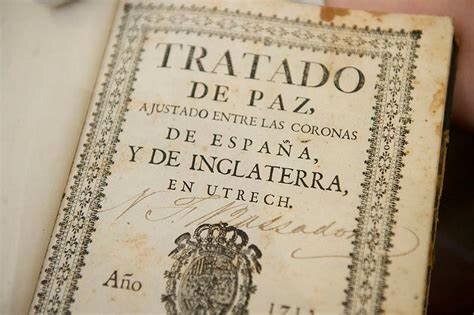 TRATADO
DE PAZ,
AJUSTADO ENTRE LAS CORONAS
DE ESPAÑA,
Y DE INGLATERRA,
EN UTRECH.
Año